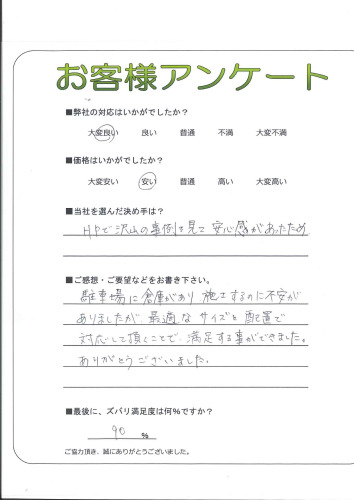 お客様アンケート
■弊社の対応はいかがでしたか？
大変良い 良い 普通 不満 大変不満
■価格はいかがでしたか？
大変安い 安い 普通 高い 大変高い
■当社を選んだ決め手は？
HPで沢山の事例を見て安心感があったため
■ご感想・ご要望などをお書き下さい。
駐車場に倉庫があり施工するのに不安が
ありましたが、最適なサイズと配置で
対応して頂くことで、満足する事ができました。
ありがとうございました。
■最後に、ズバリ満足度は何％ですか？
90 ％
ご協力頂き、誠にありがとうございました。